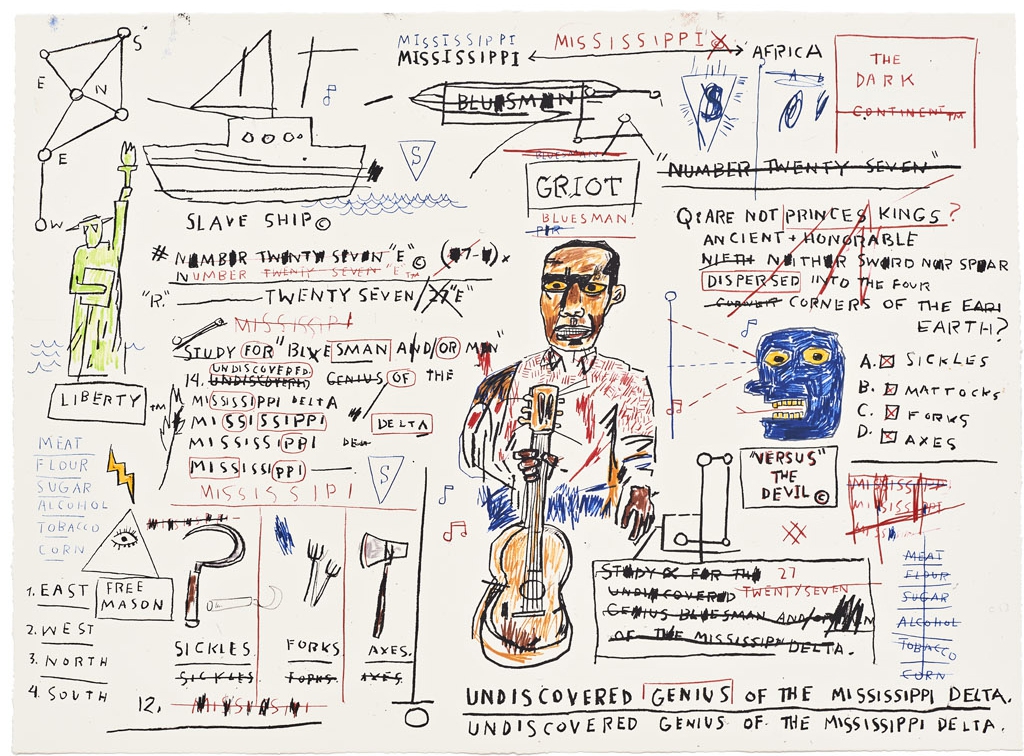 S
E
N
E
W
MISSISSIPPI
MISSISSIPPI
MISSISSIPPI
AFRICA
THE
DARK
CONTINENT™
BLUESMAN
S
A B
S
SLAVE SHIP©
BLUESMAN
GRIOT
BLUESMAN
"NUMBER TWENTY SEVEN"
Q: ARE NOT PRINCES KINGS?
ANCIENT + HONORABLE
NIETH NEITHER SWORD NOR SPEAR
DISPERSED INTO THE FOUR
CORNERS OF THE EARI
EARTH?
# NUMBER TWENTY SEVEN "E"©
NUMBER TWENTY SEVEN "E"™
"R." TWENTY SEVEN 27 "E"
MISSISSIPI
STUDY FOR "BLUESMAN AND/OR MAN"
UNDISCOVERED
14. UNDISCOVERD GENIUS OF THE
MISSISSIPPI DELTA
MISSISSIPPI DELTA
MISSISSIPPI
MISSISSIPPI
MISSISSIPI
S
LIBERTY™
MEAT
FLOUR
SUGAR
ALCOHOL
TOBACCO
CORN
FREE
MASON
1. EAST
2. WEST
3. NORTH
4. SOUTH
SICKLES
SICKLES
FORKS
FORKS
AXES.
AXES.
12. MISSISSIPI
A. SICKLES
B. MATTOCKS
C. FORKS
D. AXES
"VERSUS"
THE
DEVIL©
MISSISSIPPI
MISSISSIPI
MEAT
FLOUR
SUGAR
ALCOHOL
TOBACCO
CORN
STUDY FOR THE 27
UNDISCOVERED TWENTYSEVEN
GENIUS BLUESMAN AND/OR
OF THE MISSISSIPPI DELTA.
UNDISCOVERED GENIUS OF THE MISSISSIPPI DELTA.
UNDISCOVERED GENIUS OF THE MISSISSIPPI DELTA.